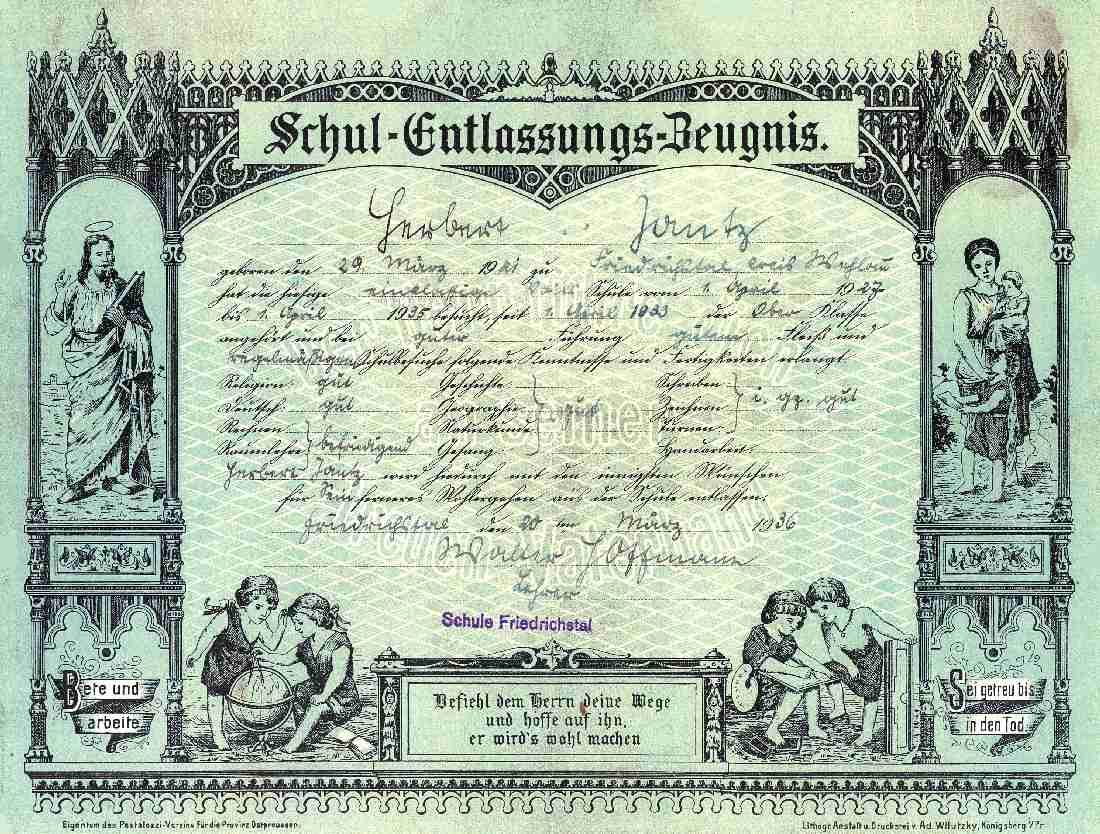 Schul-Entlassungs-Zeugnis.
Herbert Jantz
geboren den 29. März 1921 zu Friedrichstal Kreis Wehlau
hat die hiesige einklassige Schule vom 1. April 1927
bis 1. April 1935 besucht, seit 1. April 1933 der Ober Klasse
angehört und bei guter Führung gutem Fleiß und
regelmäßigem Schulbesuche folgende Kenntnisse und Fertigkeiten erlangt
Religion: gut Geschichte: Schreiben:
Deutsch: gut Geographie: gut Zeichnen: i. gz. gut
Rechnen: Naturkunde: Turnen:
Raumlehre: befriedigend Gesang: Handarbeit:
Herbert Jantz wird hiedurch mit den innigsten Wünschen
für Sein ferneres Wohlergehen aus der Schule entlassen.
Friedrichstal den 20 ten März 1936
Walter Hoffmann
Lehrer
Schule Friedrichstal
Bete und
arbeite
Befiehl dem Herrn deine Wege
und hoffe auf ihn,
er wird's wohl machen
Sei getreu bis
in den Tod.
Eigentum des Pestalozzi-Vereins für die Provinz Ostpreussen.
Lithogr. Anstalt u. Druckerei v. Ad. Wilutzky, Königsberg i/Pr.